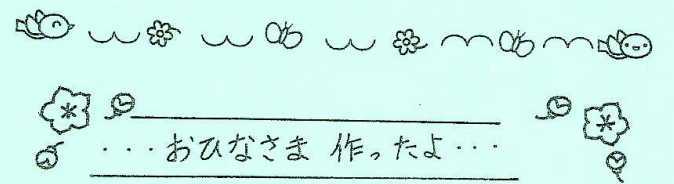 ・・・おひなさま 作ったよ・・・